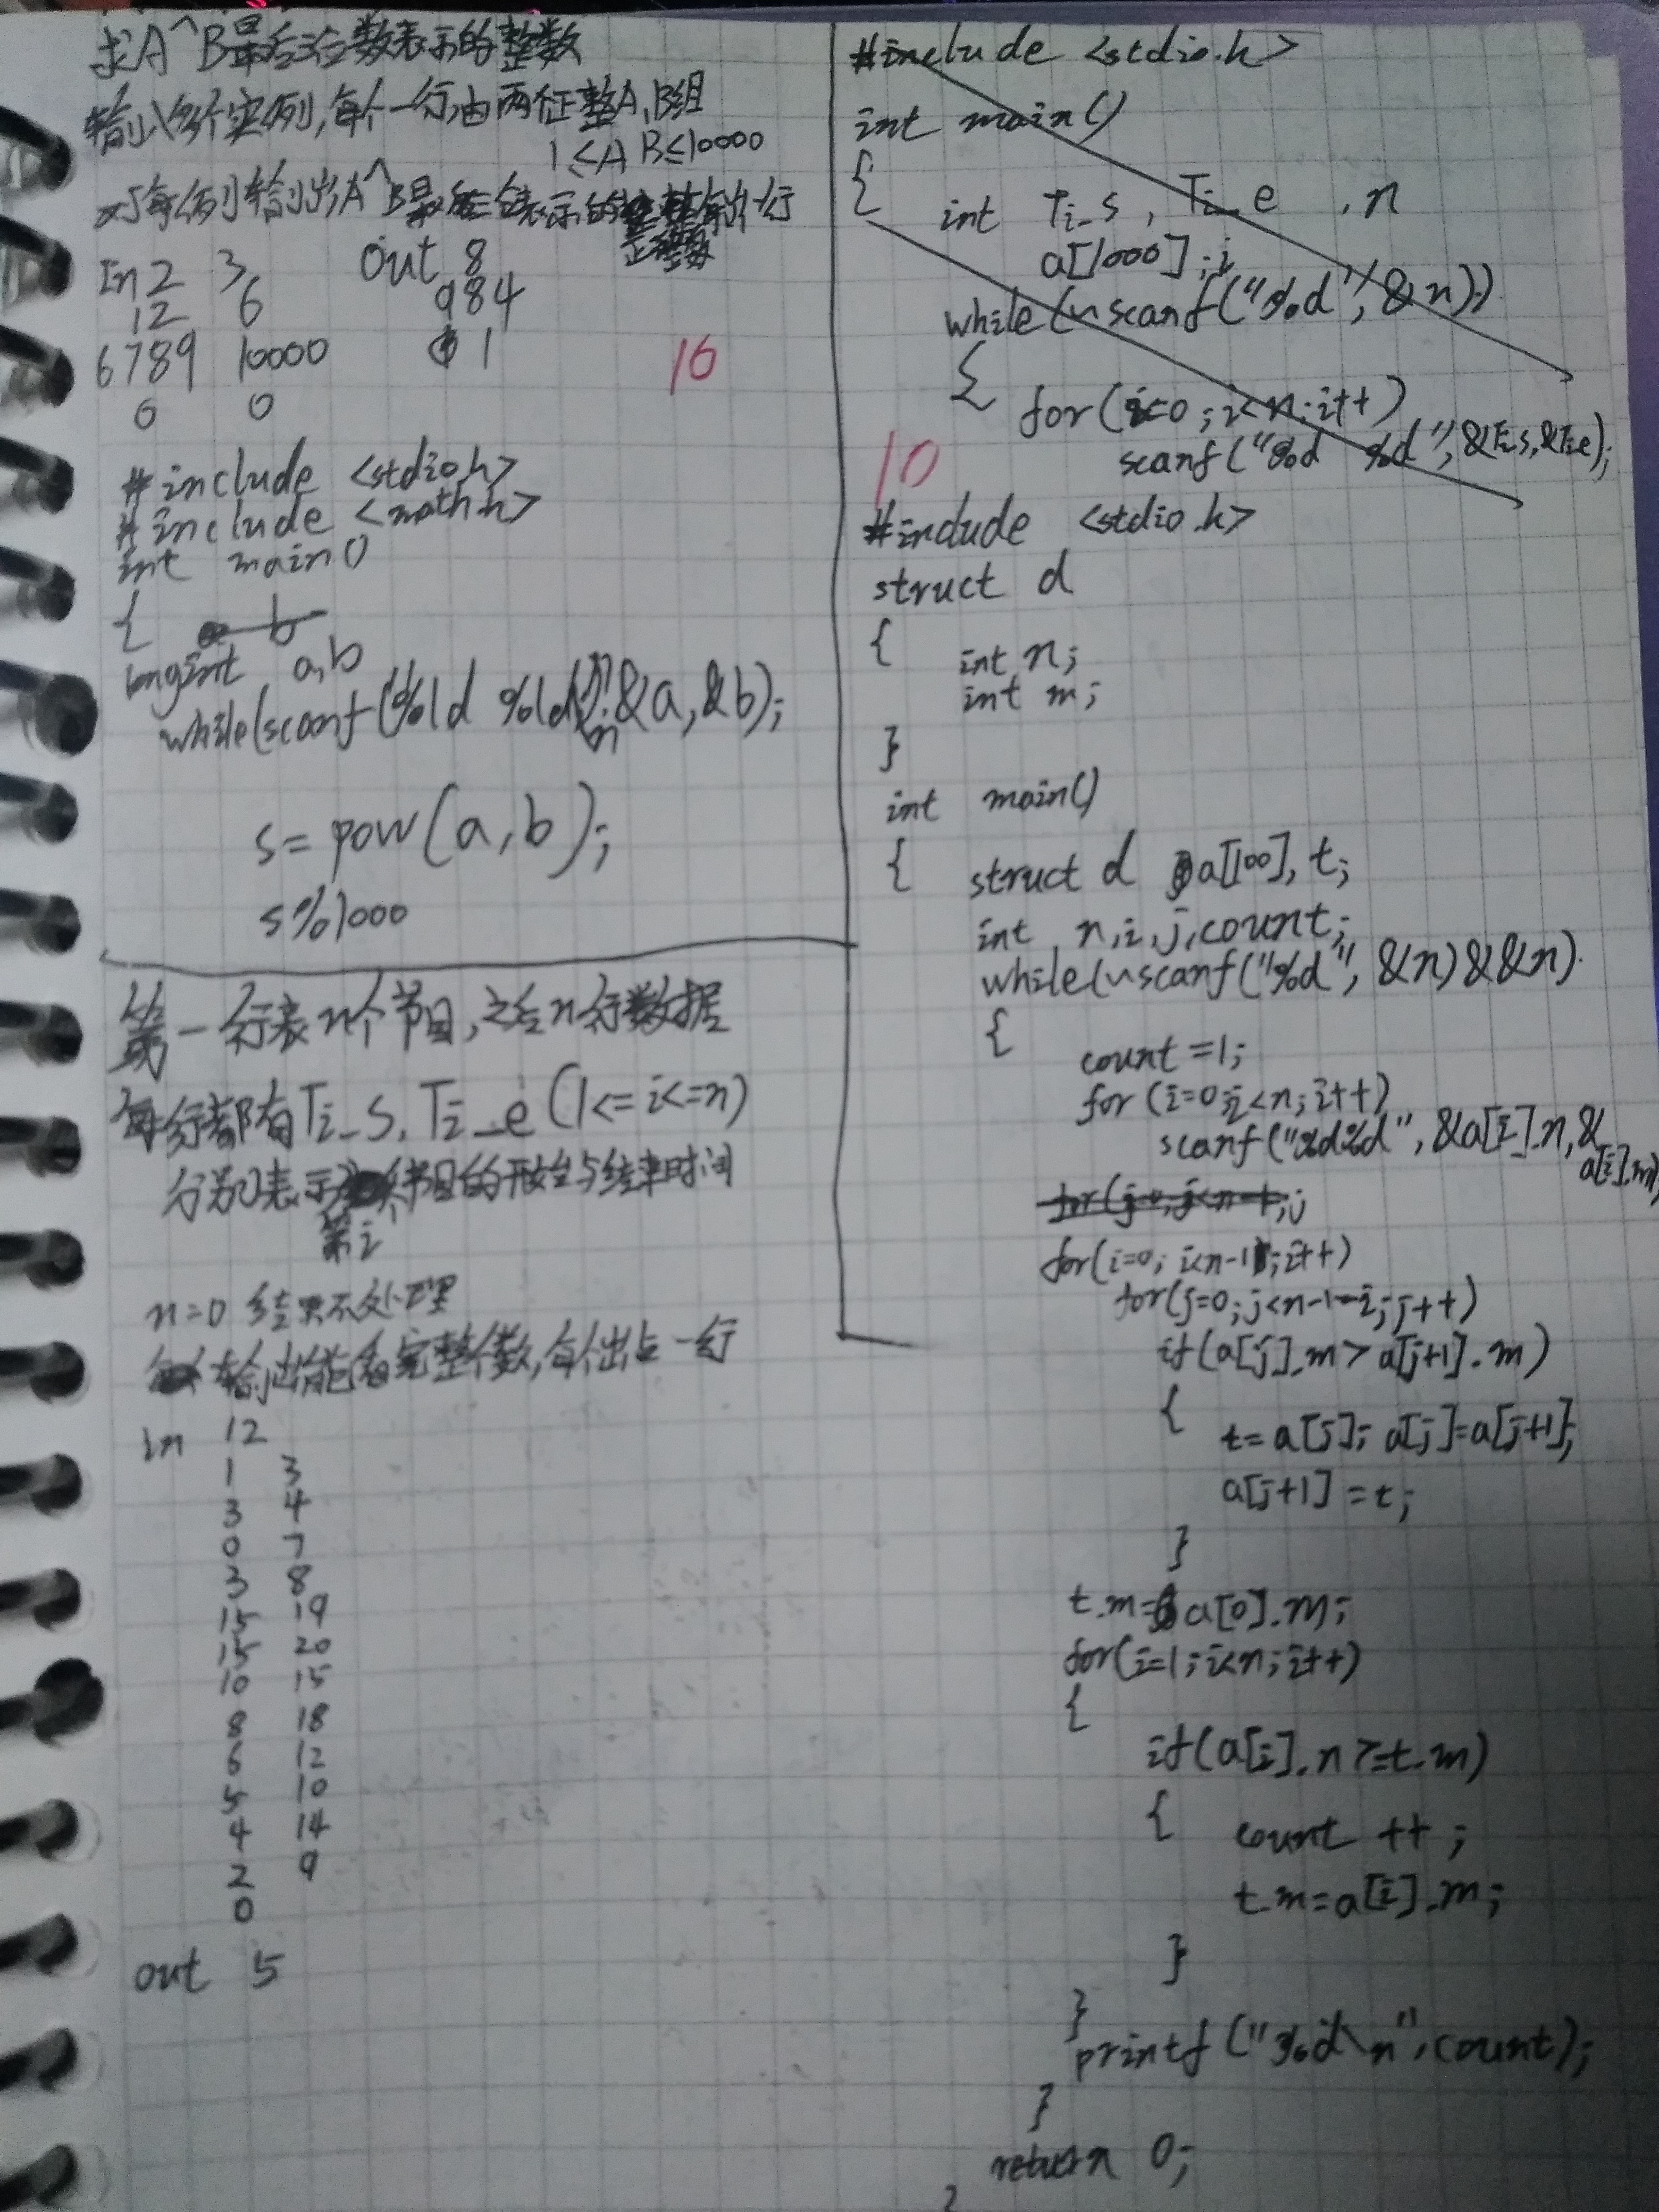 求A^B最后三位数表示的整数
输入多个实例,每个一行,由两个正整A,B组
1≤A B≤10000
对每例输出A^B最后三位表示的整数 一行
正整数
In 2 3 Out 8
12 6 984
6789 10000 1
0 0
16
#include <stdio.h>
#include <math.h>
int main()
{
long int a,b
while(scanf("%ld %ld\n",&a,&b);
s=pow(a,b);
s%1000
第一行表n个节目,之后n行数据
每行都有Ti_s, Ti_e (1<=i<=n)
分别表示 节目的开始与结束时间
第i
n=0 结束不处理
输出能看完整个数,每个出占一行
in 12
1 3
3 4
0 7
3 8
15 19
15 20
10 15
8 18
6 12
5 10
4 14
2 9
0
out 5
#include <stdio.h>
int main()
{
int Ti_s, Ti_e ,n
a[1000],i
while(~scanf("%d",&n))
{
for(i=0;i<n;i++)
scanf("%d %d",&Ti_s,&Ti_e);
10
#include <stdio.h>
struct d
{
int n;
int m;
}
int main()
{ struct d a[100],t;
int n,i,j,count;
while(~scanf("%d",&n)&&n)
{
count=1;
for(i=0;i<n;i++)
scanf("%d%d",&a[i].n,&
a[i].m)
for(j=0;j<n-1;j
for(i=0;i<n-1;i++)
for(j=0;j<n-1-i;j++)
if(a[j].m>a[j+1].m)
{ t=a[j];a[j]=a[j+1];
a[j+1]=t;
}
t.m=a[0].m;
for(i=1;i<n;i++)
{
if(a[i].n>=t.m)
{ count ++;
t.m=a[i].m;
}
}
printf("%d\n",count);
}
return 0;